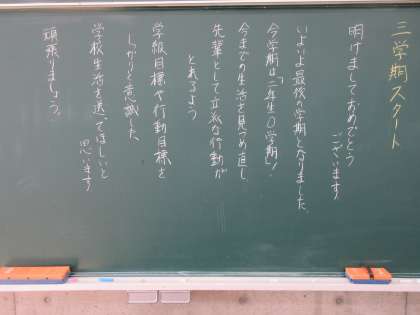 三学期スタート
明けましておめでとう
ございます
いよいよ最後の学期となりました。
今学期は「二年生0学期」!
今までの生活を見つめ直し
先輩として立派な行動が
とれるよう
学級目標や行動目標を
しっかりと意識した
学校生活を送ってほしいと
思います
頑張りましょう。